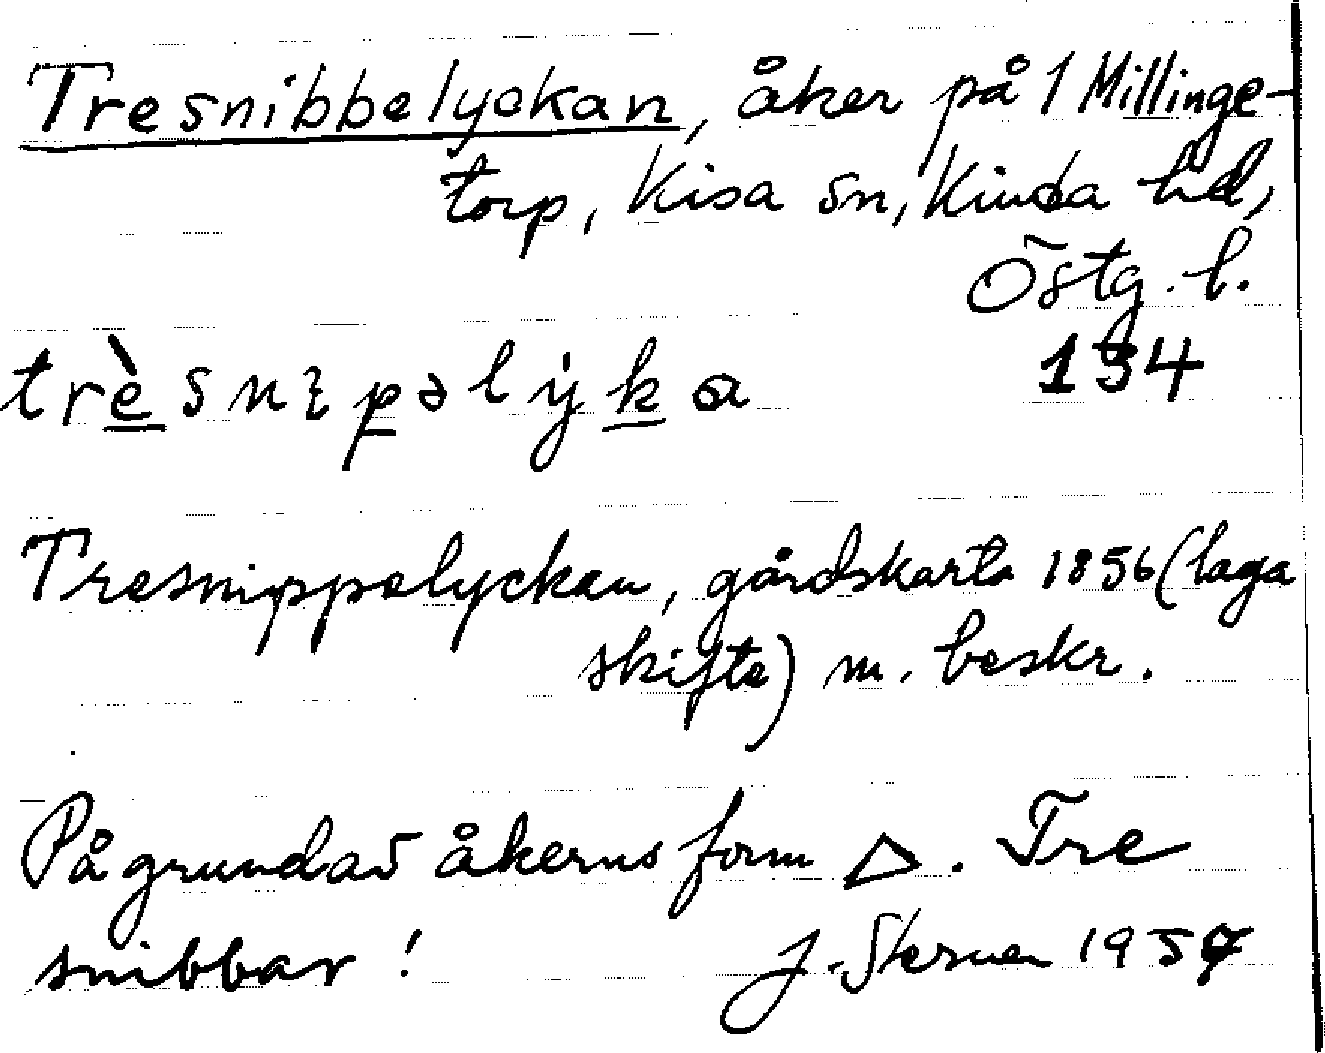 Tresnibbelyckan, åker på 1 Millinge-
torp, Kisa sn, Kinda hd,
Östg. l.
134
Tresnippelyckan, gårdskarta 1856 (laga
skifte) m. beskr.
På grund av åkerns form △. Tre
snibbar!
J. 195